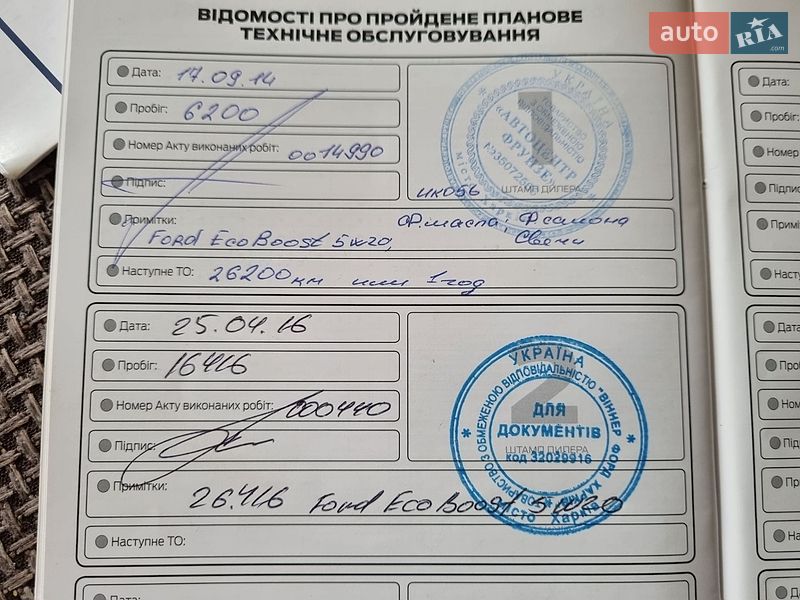 ВІДОМОСТІ ПРО ПРОЙДЕНЕ ПЛАНОВЕ
ТЕХНІЧНЕ ОБСЛУГОВУВАННЯ
auto RIA.com
Дата: 17.09.14
Пробіг: 6200
Номер Акту виконаних робіт: 0014990
Підпис:
УКРАЇНА
«АВТОЦЕНТР
ФРУНЗЕ»
1
ИК056
ШТАМП ДИЛЕРА
Примітки: Ф.масла, Ф салона
Ford EcoBoost 5w20, Свечи
Наступне ТО: 26200км или 1год
Дата: 25.04.16
Пробіг: 16416
Номер Акту виконаних робіт: 000440
Підпис:
УКРАЇНА
ТОВАРИСТВО З ОБМЕЖЕНОЮ ВІДПОВІДАЛЬНІСТЮ "ВІННЕР ФОРД ХАРКІВ"
2
ДЛЯ
ДОКУМЕНТІВ
ШТАМП ДИЛЕРА
код 32029916
місто Харків
Примітки:
26.416 Ford EcoBoost 5w20
Наступне ТО:
Дата:
Дата:
Пробіг:
Номер
Підпис
Приміт
Наступ
Дата:
Пробі
Номе
Підп
При
Нас